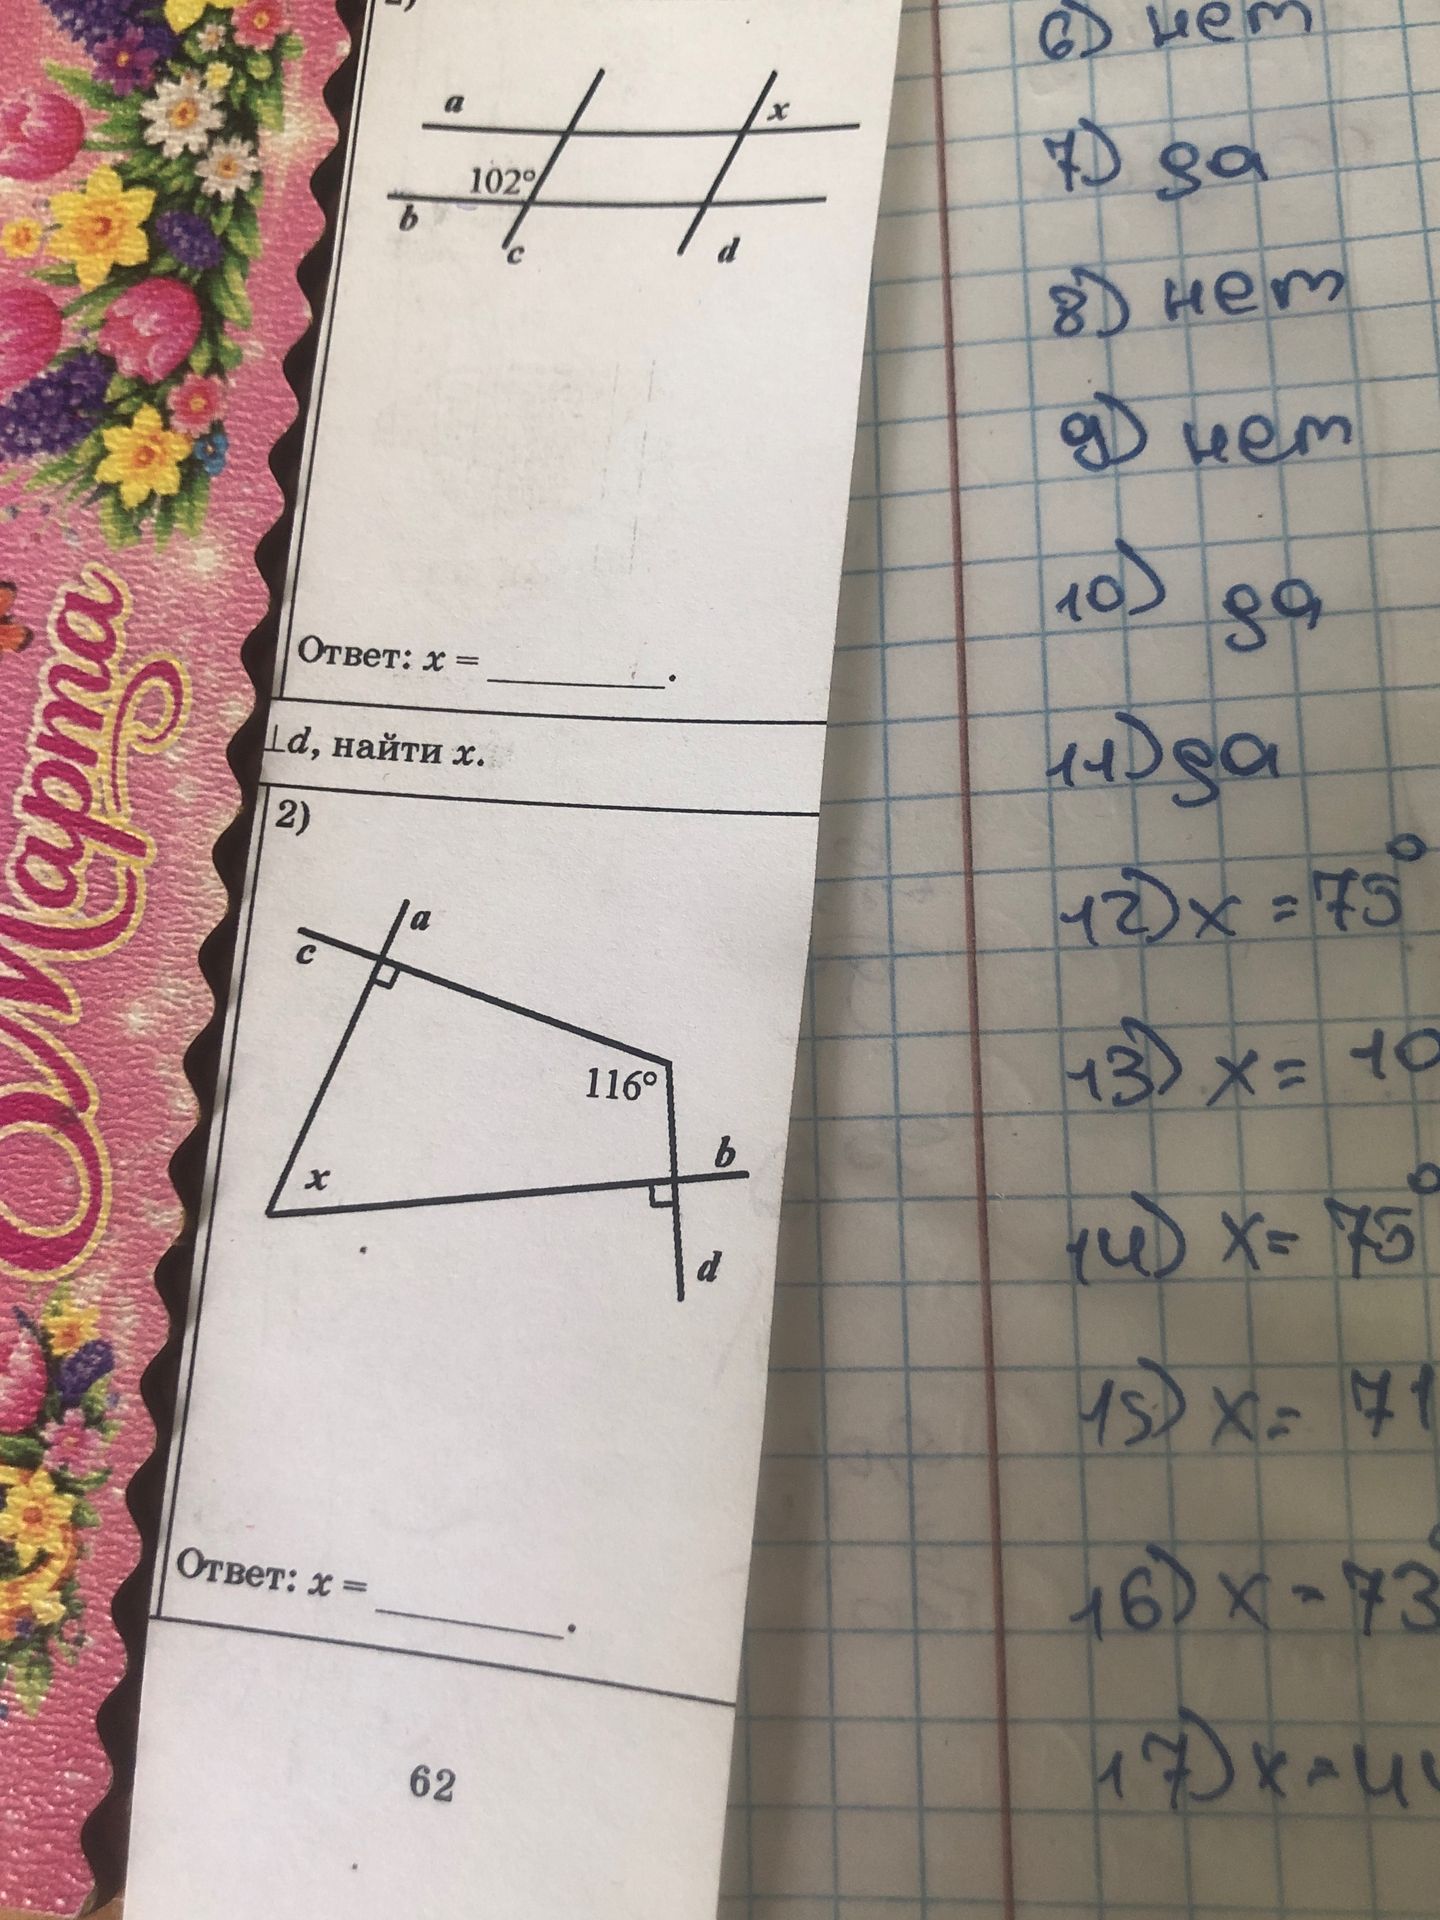 a
x
102°
b
c
d
Ответ: x = ________.
⊥d, найти x.
2)
a
c
116°
x
b
d
Ответ: x = ________.
62
Марта
6) нет
7) да
8) нет
9) нет
10) да
11) да
12) x = 75°
13) x = 10
14) x = 75°
15) x = 71
16) x = 73°
17) x = 44